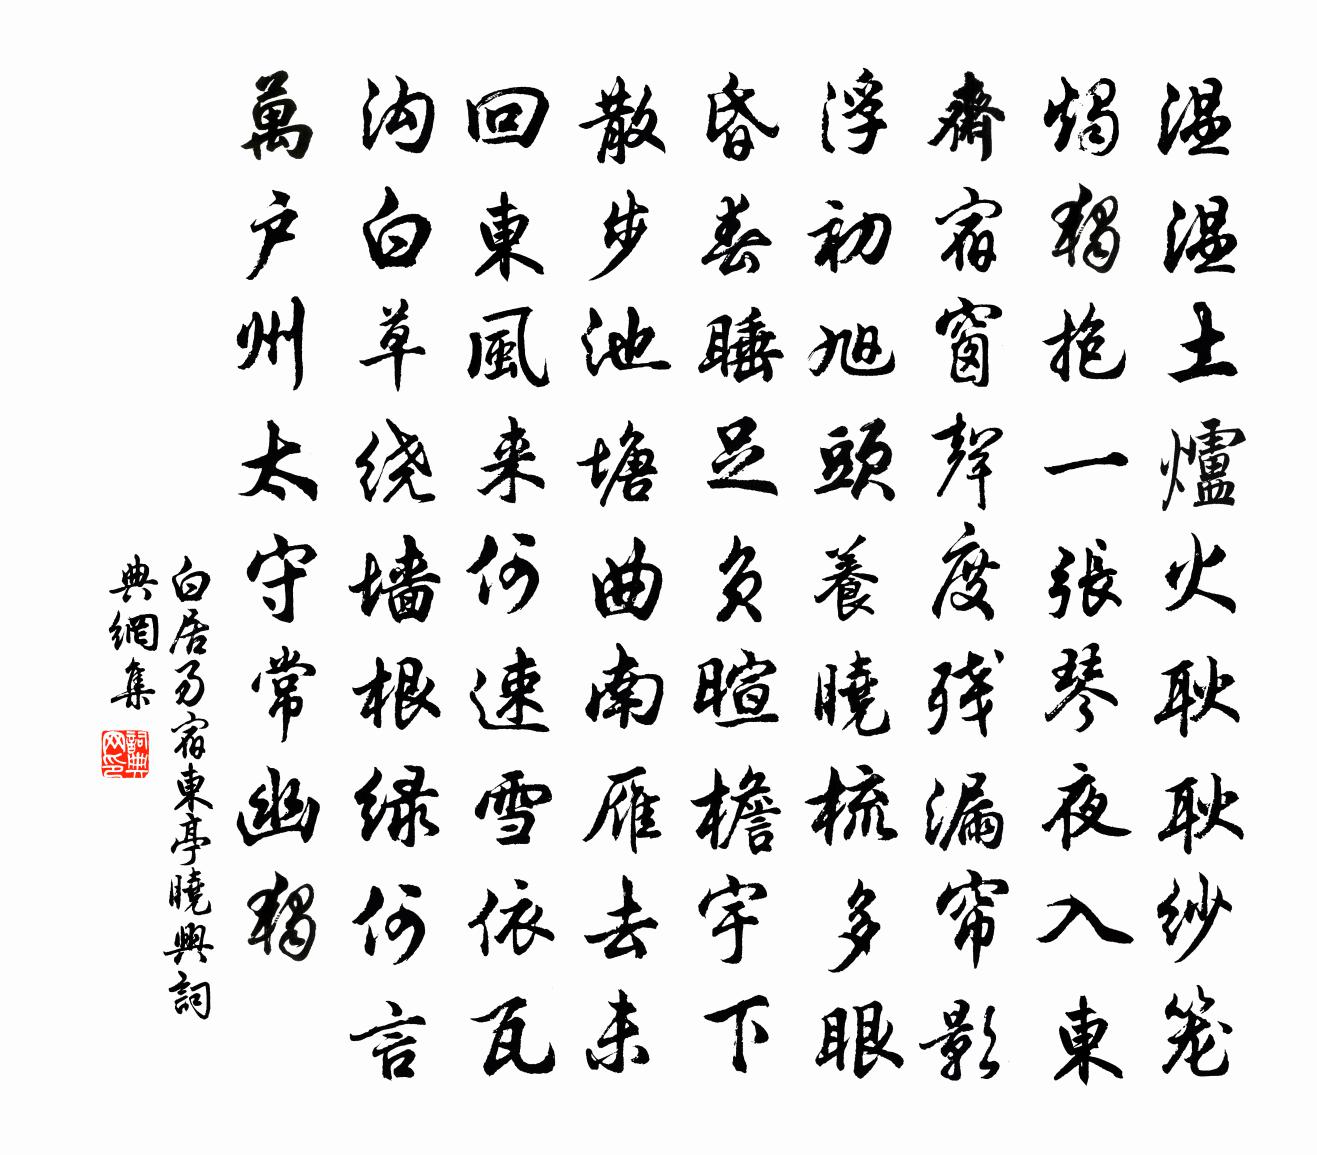 温温土爐火耿耿紗笼
燭獨抱一張琴夜入東
齋宿窗聲度残漏帘影
浮初旭頭養曉梳多眼
昏春睡足負暄檐宇下
散步池塘曲南雁去未
回東風来何速雪依瓦
沟白草绕墙根绿何言
萬户州太守常幽獨
白居易宿東亭曉興詞
典網集
詞典网印